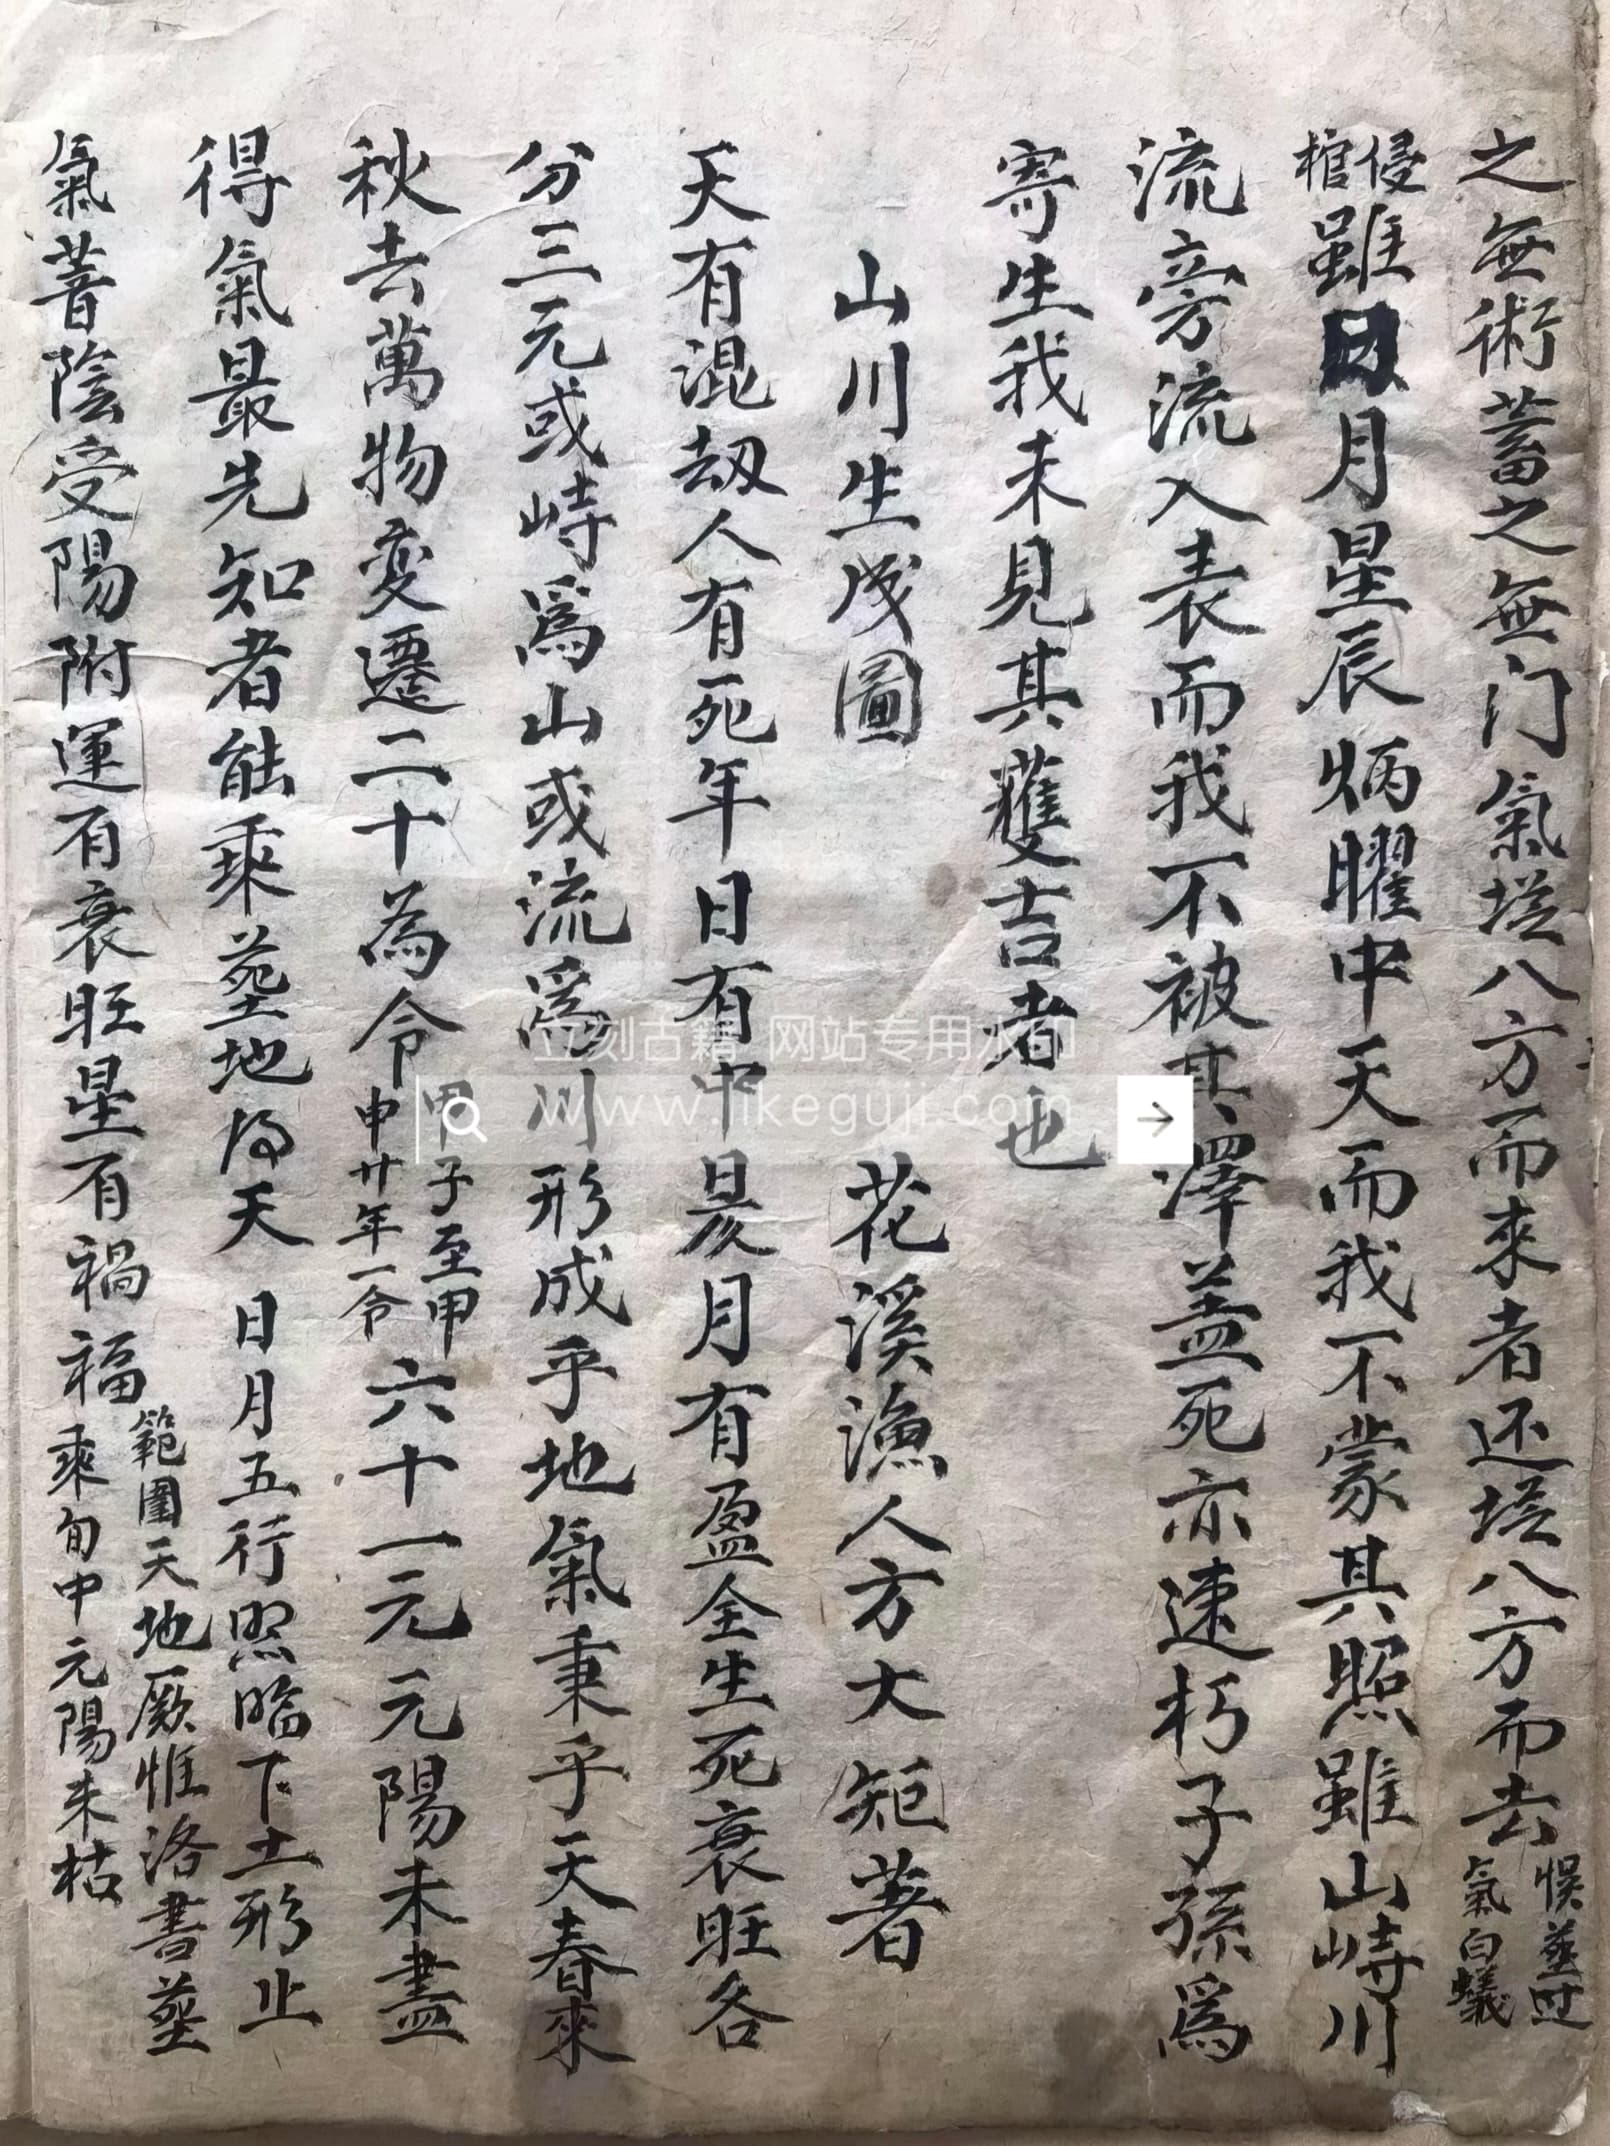 之無術蓄之無门氣塔八方而來者还塔八方而去悞塟过氣白蟻
侵棺雖日月星辰炳曜中天而我不蒙其照雖山峙川
流旁流入表而我不被其澤盖死亦速朽子孫爲
寄生我未見其獲吉者也
山川生成圖 花溪漁人方大矩著
天有混劫人有死年日有中昃月有盈全生死衰旺各
分三元或峙爲山或流爲川形成乎地氣秉乎天春來
秋去萬物変遷二十為令甲子至甲申廿年一令六十一元元陽未盡
得氣最先知者能乘塟地得天 日月五行照臨下土形止
氣著陰受陽附運有衰旺星有禍福範圍天地厥惟洛書塟乘旬中元陽未枯
立刻古籍 网站专用水印
www.likeguji.com